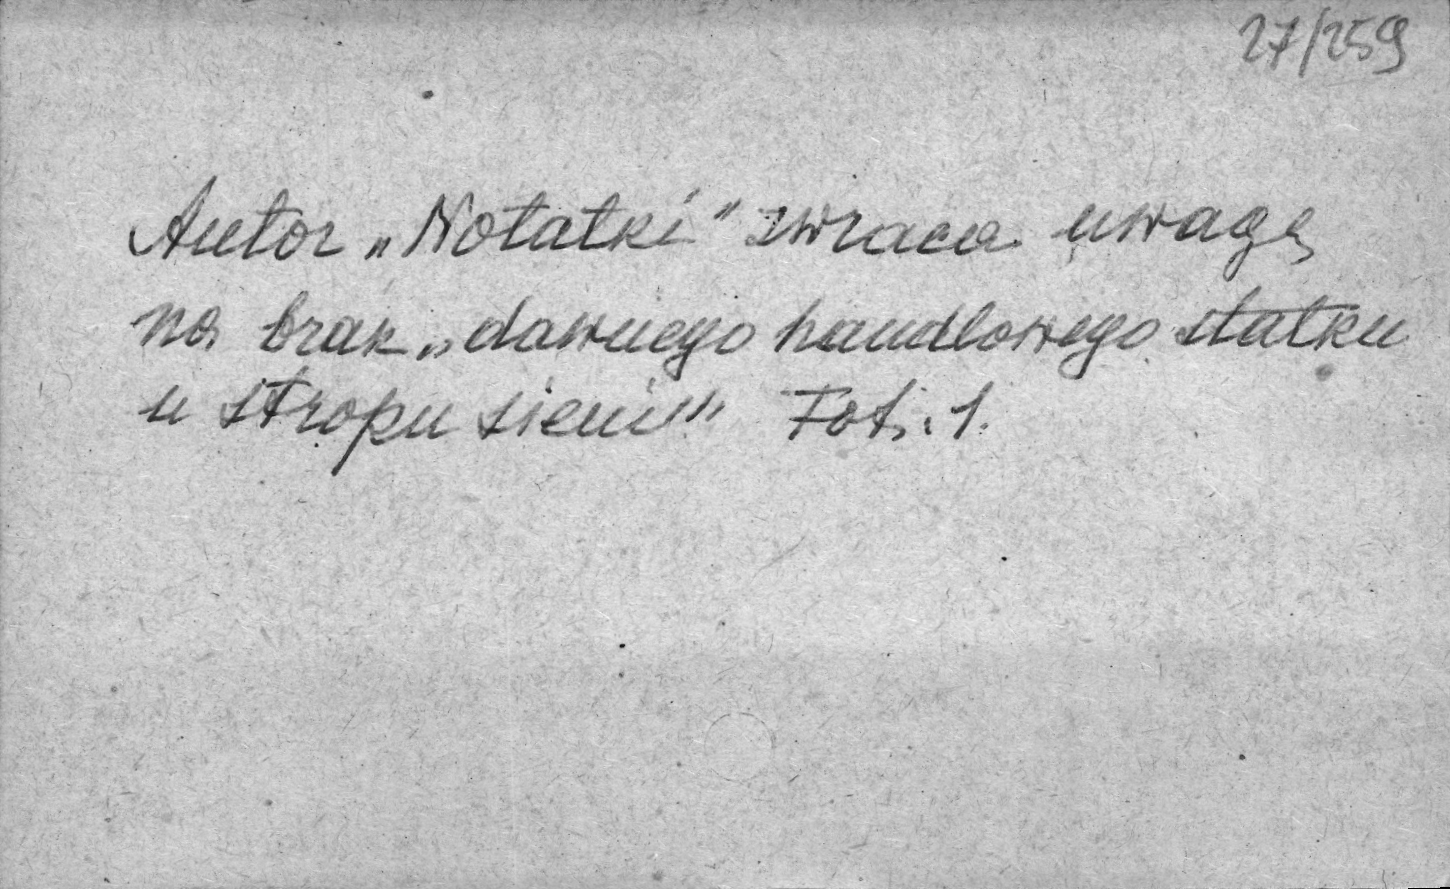 27/259
Autor „Notatki” zwraca uwagę
na brak „dawnego handlowego statku
u stropu sieni” Fot. 1.